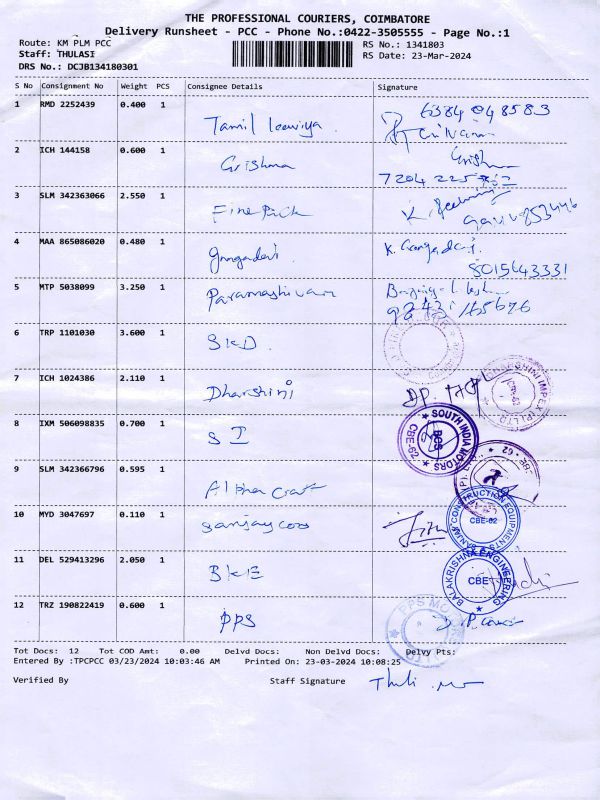 THE PROFESSIONAL COURIERS, COIMBATORE
Delivery Runsheet - PCC - Phone No.:0422-3505555 - Page No.:1
Route: KM PLM PCC
RS No.: 1341803
Staff: THULASI
RS Date: 23-Mar-2024
DRS No.: DCJB134180301
S No Consignment No Weight PCS Consignee Details Signature
1 RMD 2252439 0.400 1 Tamil
6384048583
2 ICH 144158 0.600 1 Grishma
3 SLM 342363066 2.550 1 Finepick
4 MAA 865086020 0.480 1 Gangadevi K. Gangadevi.
8015643331
5 MTP 5038099 3.250 1 Paramashivam
6 TRP 1101030 3.600 1 SKD.
7 ICH 1024386 2.110 1 Dharshini
DHARSHINI IMPEX (P) LTD
8 IXM 506098835 0.700 1 S I
SOUTH INDIA MOTORS
BCS
CBE-62
9 SLM 342366796 0.595 1 Alpha Craft
10 MYD 3047697 0.110 1 Sanjay coo
SANJAY CONSTRUCTION EQUIPMENTS
CBE-62
11 DEL 529413296 2.050 1 BKE
BALAKRISHNA ENGINEERING
CBE
12 TRZ 190822419 0.600 1 PPS
PPS
Tot Docs: 12 Tot COD Amt: 0.00 Delvd Docs: Non Delvd Docs: Delvy Pts:
Entered By :TPCPCC 03/23/2024 10:03:46 AM Printed On: 23-03-2024 10:08:25
Verified By Staff Signature